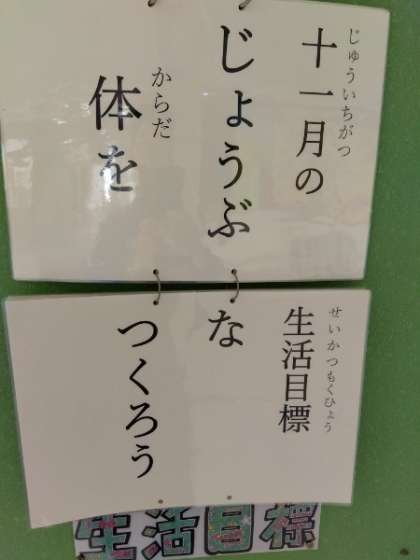 十一月の生活目標
じゅういちがつ せいかつもくひょう
じょうぶな
体をつくろう
からだ
生活目標